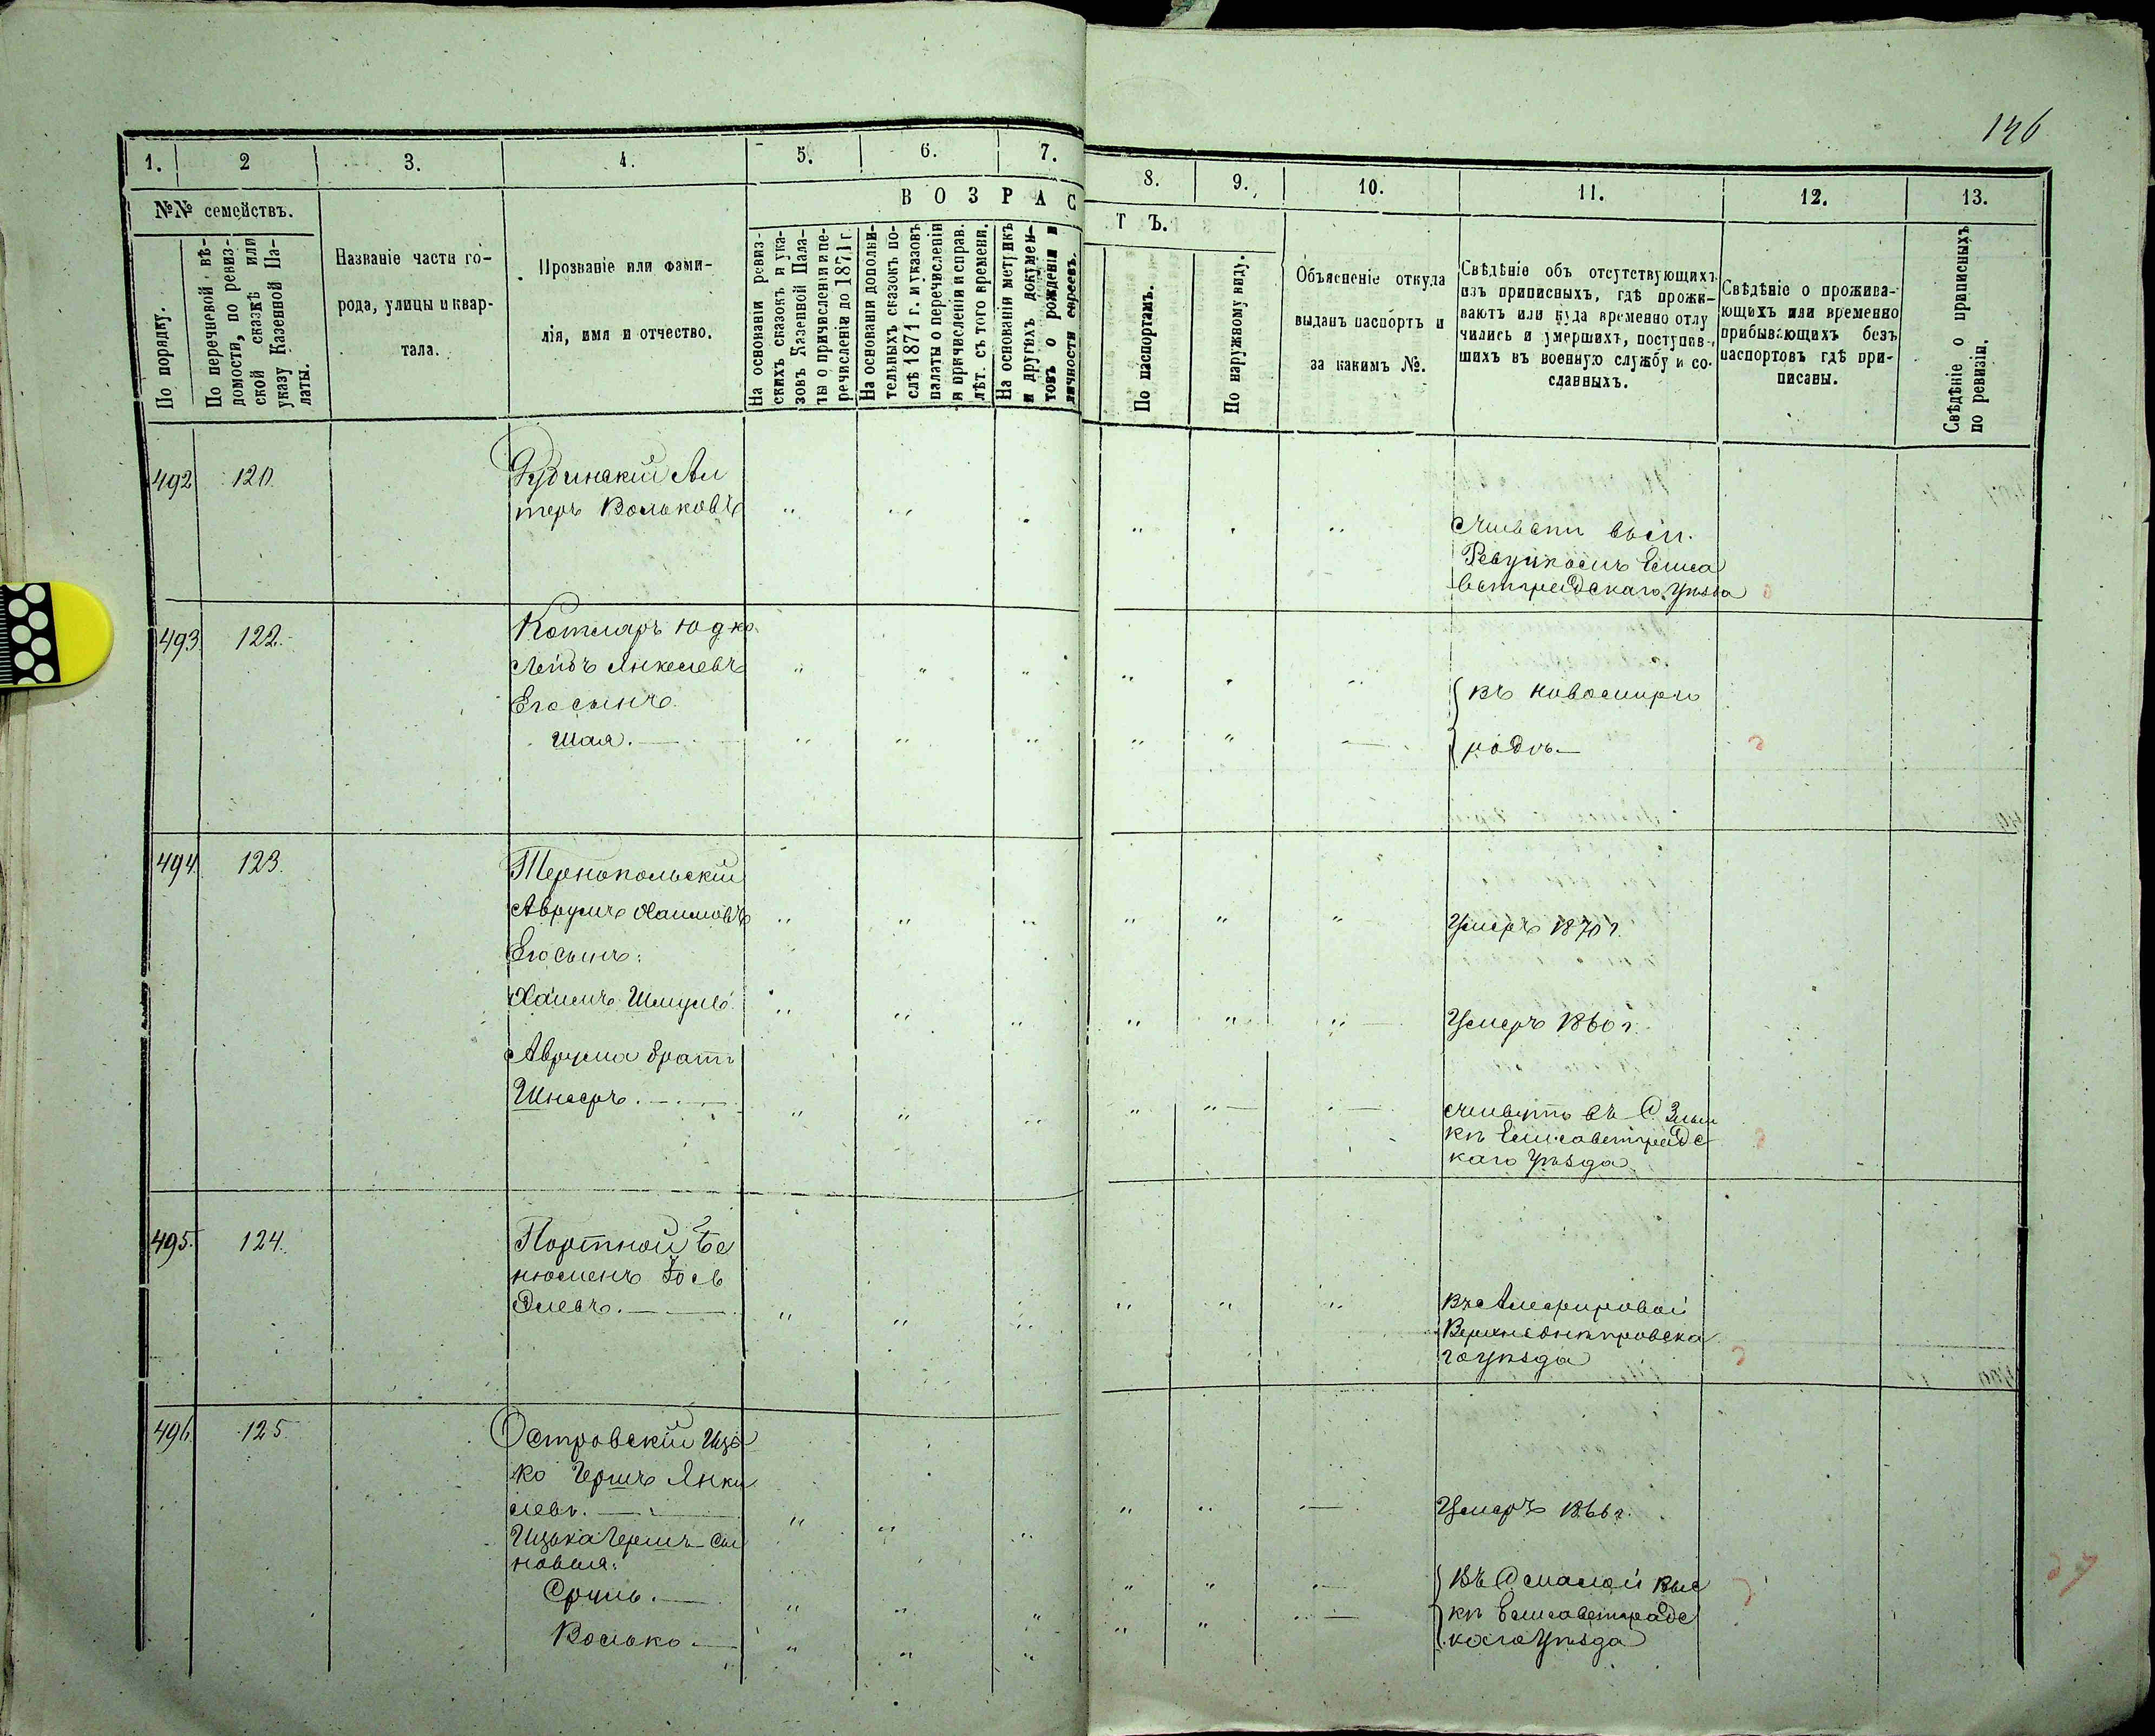 146
1. 2 3. 4. 5. 6. 7.
8. 9. 10. 11. 12. 13.
№№ семействъ.
По порядку.
По перечневой вѣ-
домости, по ревиз-
ской сказкѣ или
указу Казенной Па-
латы.
Названіе части го-
рода, улицы и квар-
тала.
Прозваніе или фами-
лія, имя и отчество.
ВОЗРАС
На основаніи ревиз-
скихъ сказокъ и ука-
зовъ Казенной Пала-
ты о причисленіи и пе-
речисленіи до 1871 г.
На основаніи дополни-
тельныхъ сказокъ по-
слѣ 1871 г. и указовъ
палаты о перечисленіи
и причисленіи и справ.
лѣт. съ того времени.
На основаніи метрикъ
и другихъ докумен-
товъ о рожденіи и
личности евреевъ.
ТЪ.
По паспортамъ.
По наружному виду.
Объясненіе откуда
выданъ паспортъ и
за какимъ №.
Свѣдѣніе объ отсутствующихъ
изъ приписныхъ, гдѣ прожи-
ваютъ или куда временно отлу
чились и умершихъ, поступив-
шихъ въ военную службу и со-
сланныхъ.
Свѣдѣніе о прожива-
ющихъ или временно
прибывающихъ безъ
паспортовъ гдѣ при-
писаны.
Свѣдѣніе о приписныхъ
по ревизіи.
492 120. Рудинскій Ал
теръ Вольковъ
живетъ
Елиса
ветградскаго уѣзда
493. 122. Котляръ Юдко
Лейбъ Янкелевъ
Его сынъ
Шая.
въ Новомирго
родѣ.
494. 123. Тернопольскій
Аврумъ Хаимовъ
Умеръ 1870 г.
Его сынъ:
Хаимъ Шмуль
Умеръ 1860 г.
Аврума братъ
Шнееръ.
живетъ въ С Злын
кѣ Елисаветградс
каго уѣзда
495. 124. Портной Бе
нюменъ Іось
Элевъ.
Верхнеднѣпровска
го уѣзда
496. 125. Островскій Ицъ
ко Гершъ Янке
левъ.
Умеръ 1866 г.
Ицька Герша Сы
новья:
Сруль.
Волько.
Въ С малой Выс
кѣ Елисаветградс
каго уѣзда